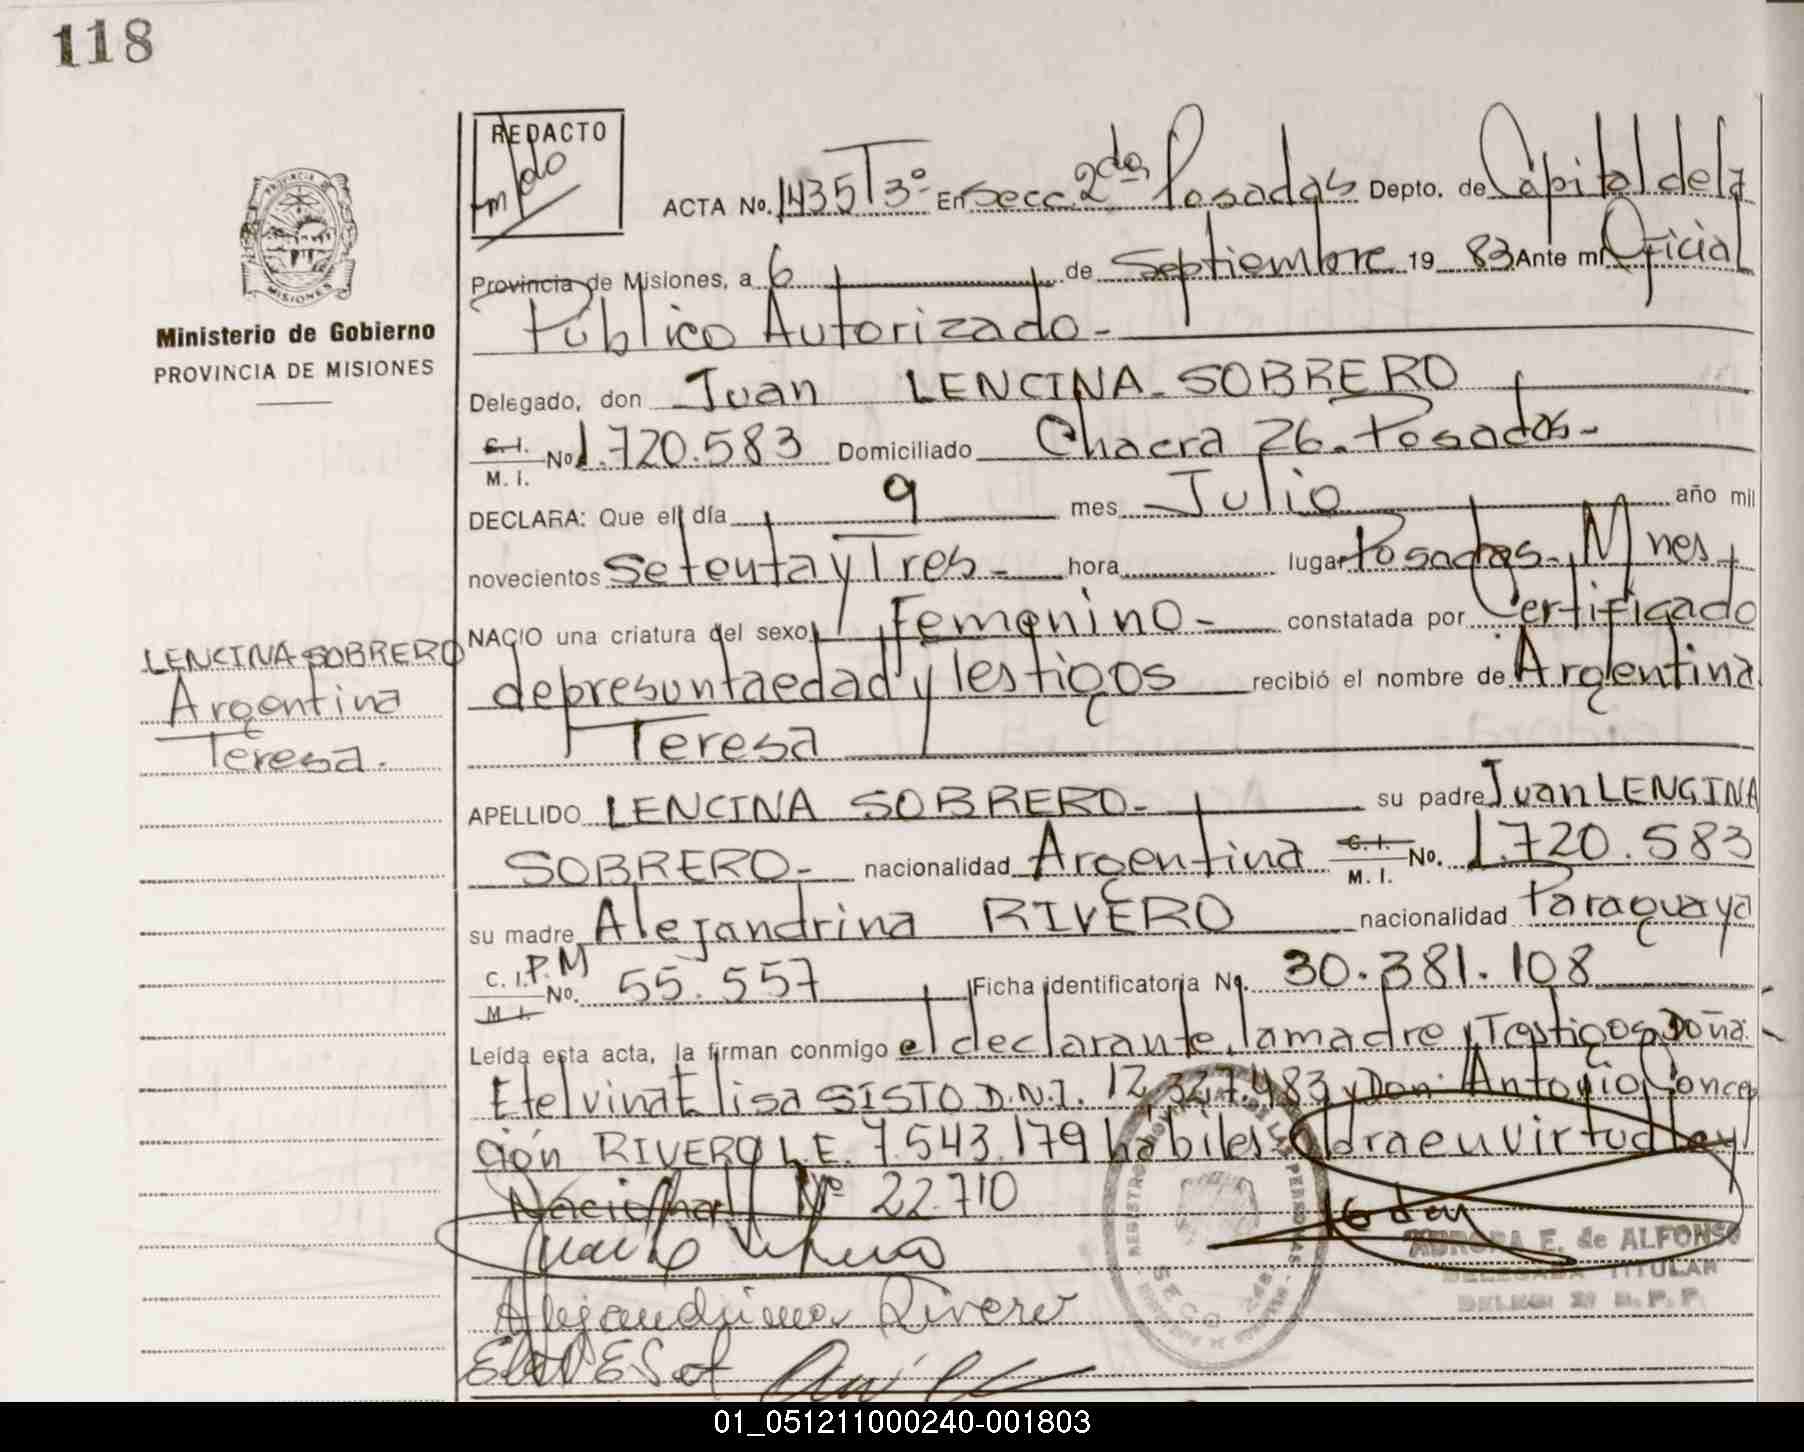 118
REDACTO
m/do
ACTA No. 1435 T3º En Secc. 2da Posadas Depto. de Capital de la
Provincia de Misiones, a 6 de Septiembre 19 83 Ante mí Oficial
Público Autorizado-
PROVINCIA DE
MISIONES
Ministerio de Gobierno
PROVINCIA DE MISIONES
Delegado, don Juan LENCINA-SOBRERO
C.I.
M.I. No 1.720.583 Domiciliado Chacra 26. Posadas-
DECLARA: Que el día 9 mes Julio año mil
novecientos Setenta y Tres- hora lugar Posadas-Mnes
NACIO una criatura del sexo Femenino- constatada por Certificado
de presunta edad y Testigos recibió el nombre de Argentina
Teresa
LENCINA SOBRERO
Argentina
Teresa.
APELLIDO LENCINA SOBRERO- su padre Juan LENCINA
SOBRERO- nacionalidad Argentina C.I.
M.I. No. 1.720.583
su madre Alejandrina RIVERO nacionalidad Paraguaya
C.I. P.M
M.I. No. 55.557 Ficha identificatoria No. 30.381.108
Leída esta acta, la firman conmigo el declarante, la madre y Testigos Doña:
Etelvina Elisa SISTO D.N.I. 12.327.483 y Don: Antonio Concep
ción RIVERO L.E. 7.543.179 hábiles. Obra en virtud Ley
Nacional Nº 22.710
AURORA E. de ALFONSO
DELEGADA TITULAR
Alejandrina Rivero
01_051211000240-001803